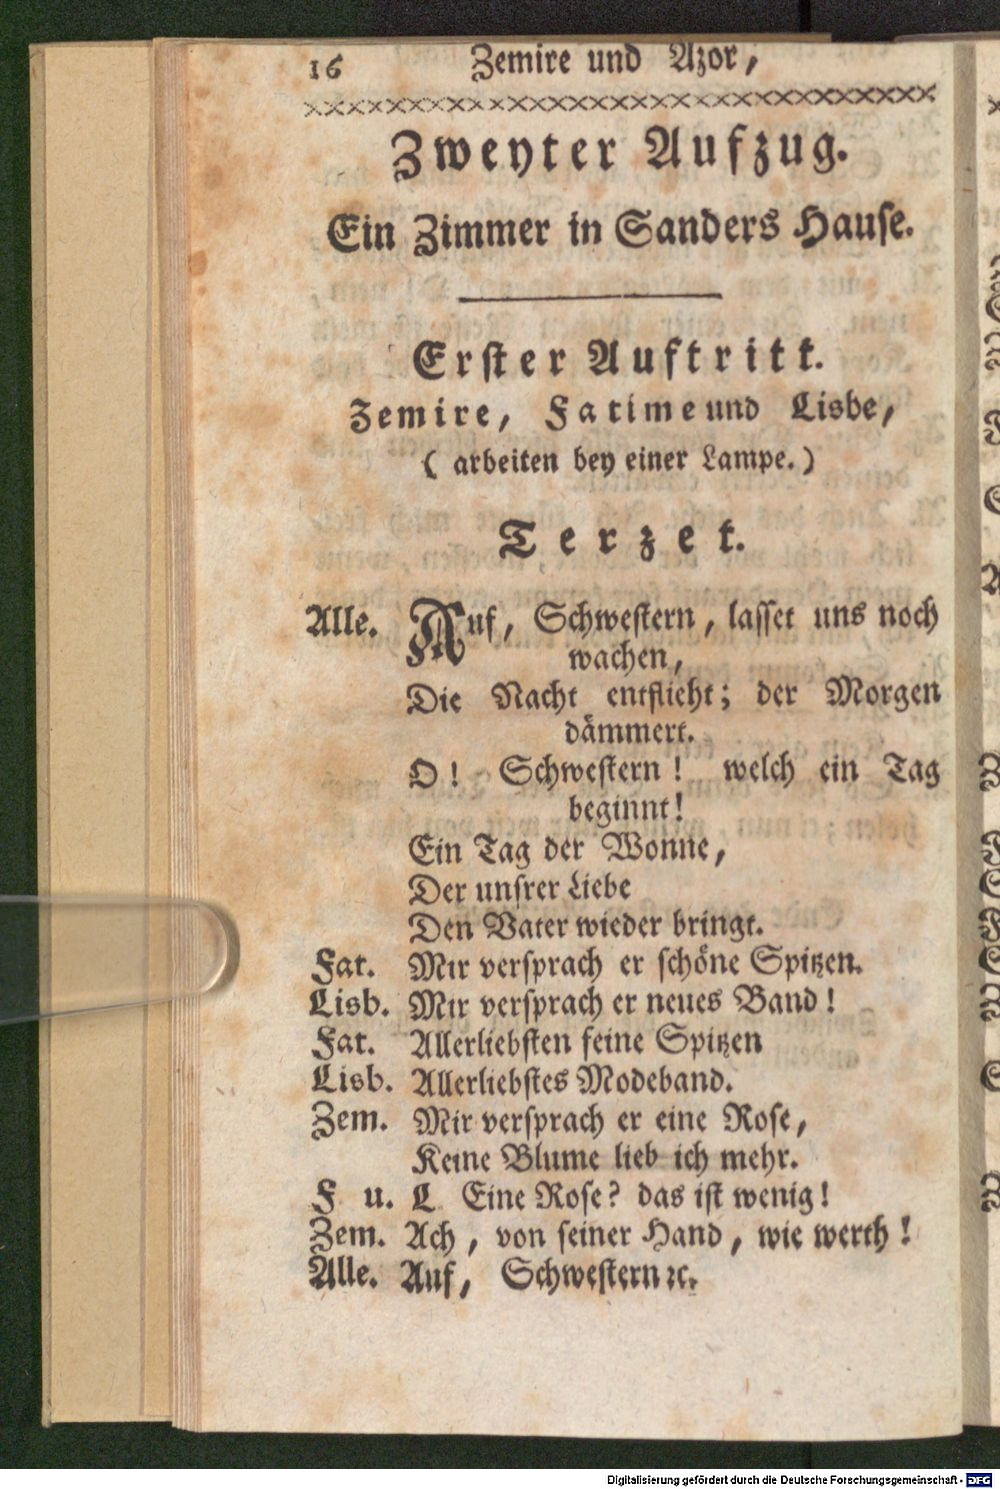 16 Zemire und Azor,
Zweyter Aufzug.
Ein Zimmer in Sanders Hause.
Erster Auftritt.
Zemire, Fatime und Lisbe,
( arbeiten bey einer Lampe.)
Terzet.
Alle. Auf, Schwestern, lasset uns noch
wachen,
Die Nacht entflieht; der Morgen
dämmert.
O! Schwestern! welch ein Tag
beginnt!
Ein Tag der Wonne,
Der unsrer Liebe
Den Vater wieder bringt.
Fat. Mir versprach er schöne Spitzen.
Lisb. Mir versprach er neues Band!
Fat. Allerliebsten feine Spitzen
Lisb. Allerliebstes Modeband.
Zem. Mir versprach er eine Rose,
Keine Blume lieb ich mehr.
F u. L Eine Rose? das ist wenig!
Zem. Ach, von seiner Hand, wie werth!
Alle. Auf, Schwestern ꝛc.
Digitalisierung gefördert durch die Deutsche Forschungsgemeinschaft - DFG